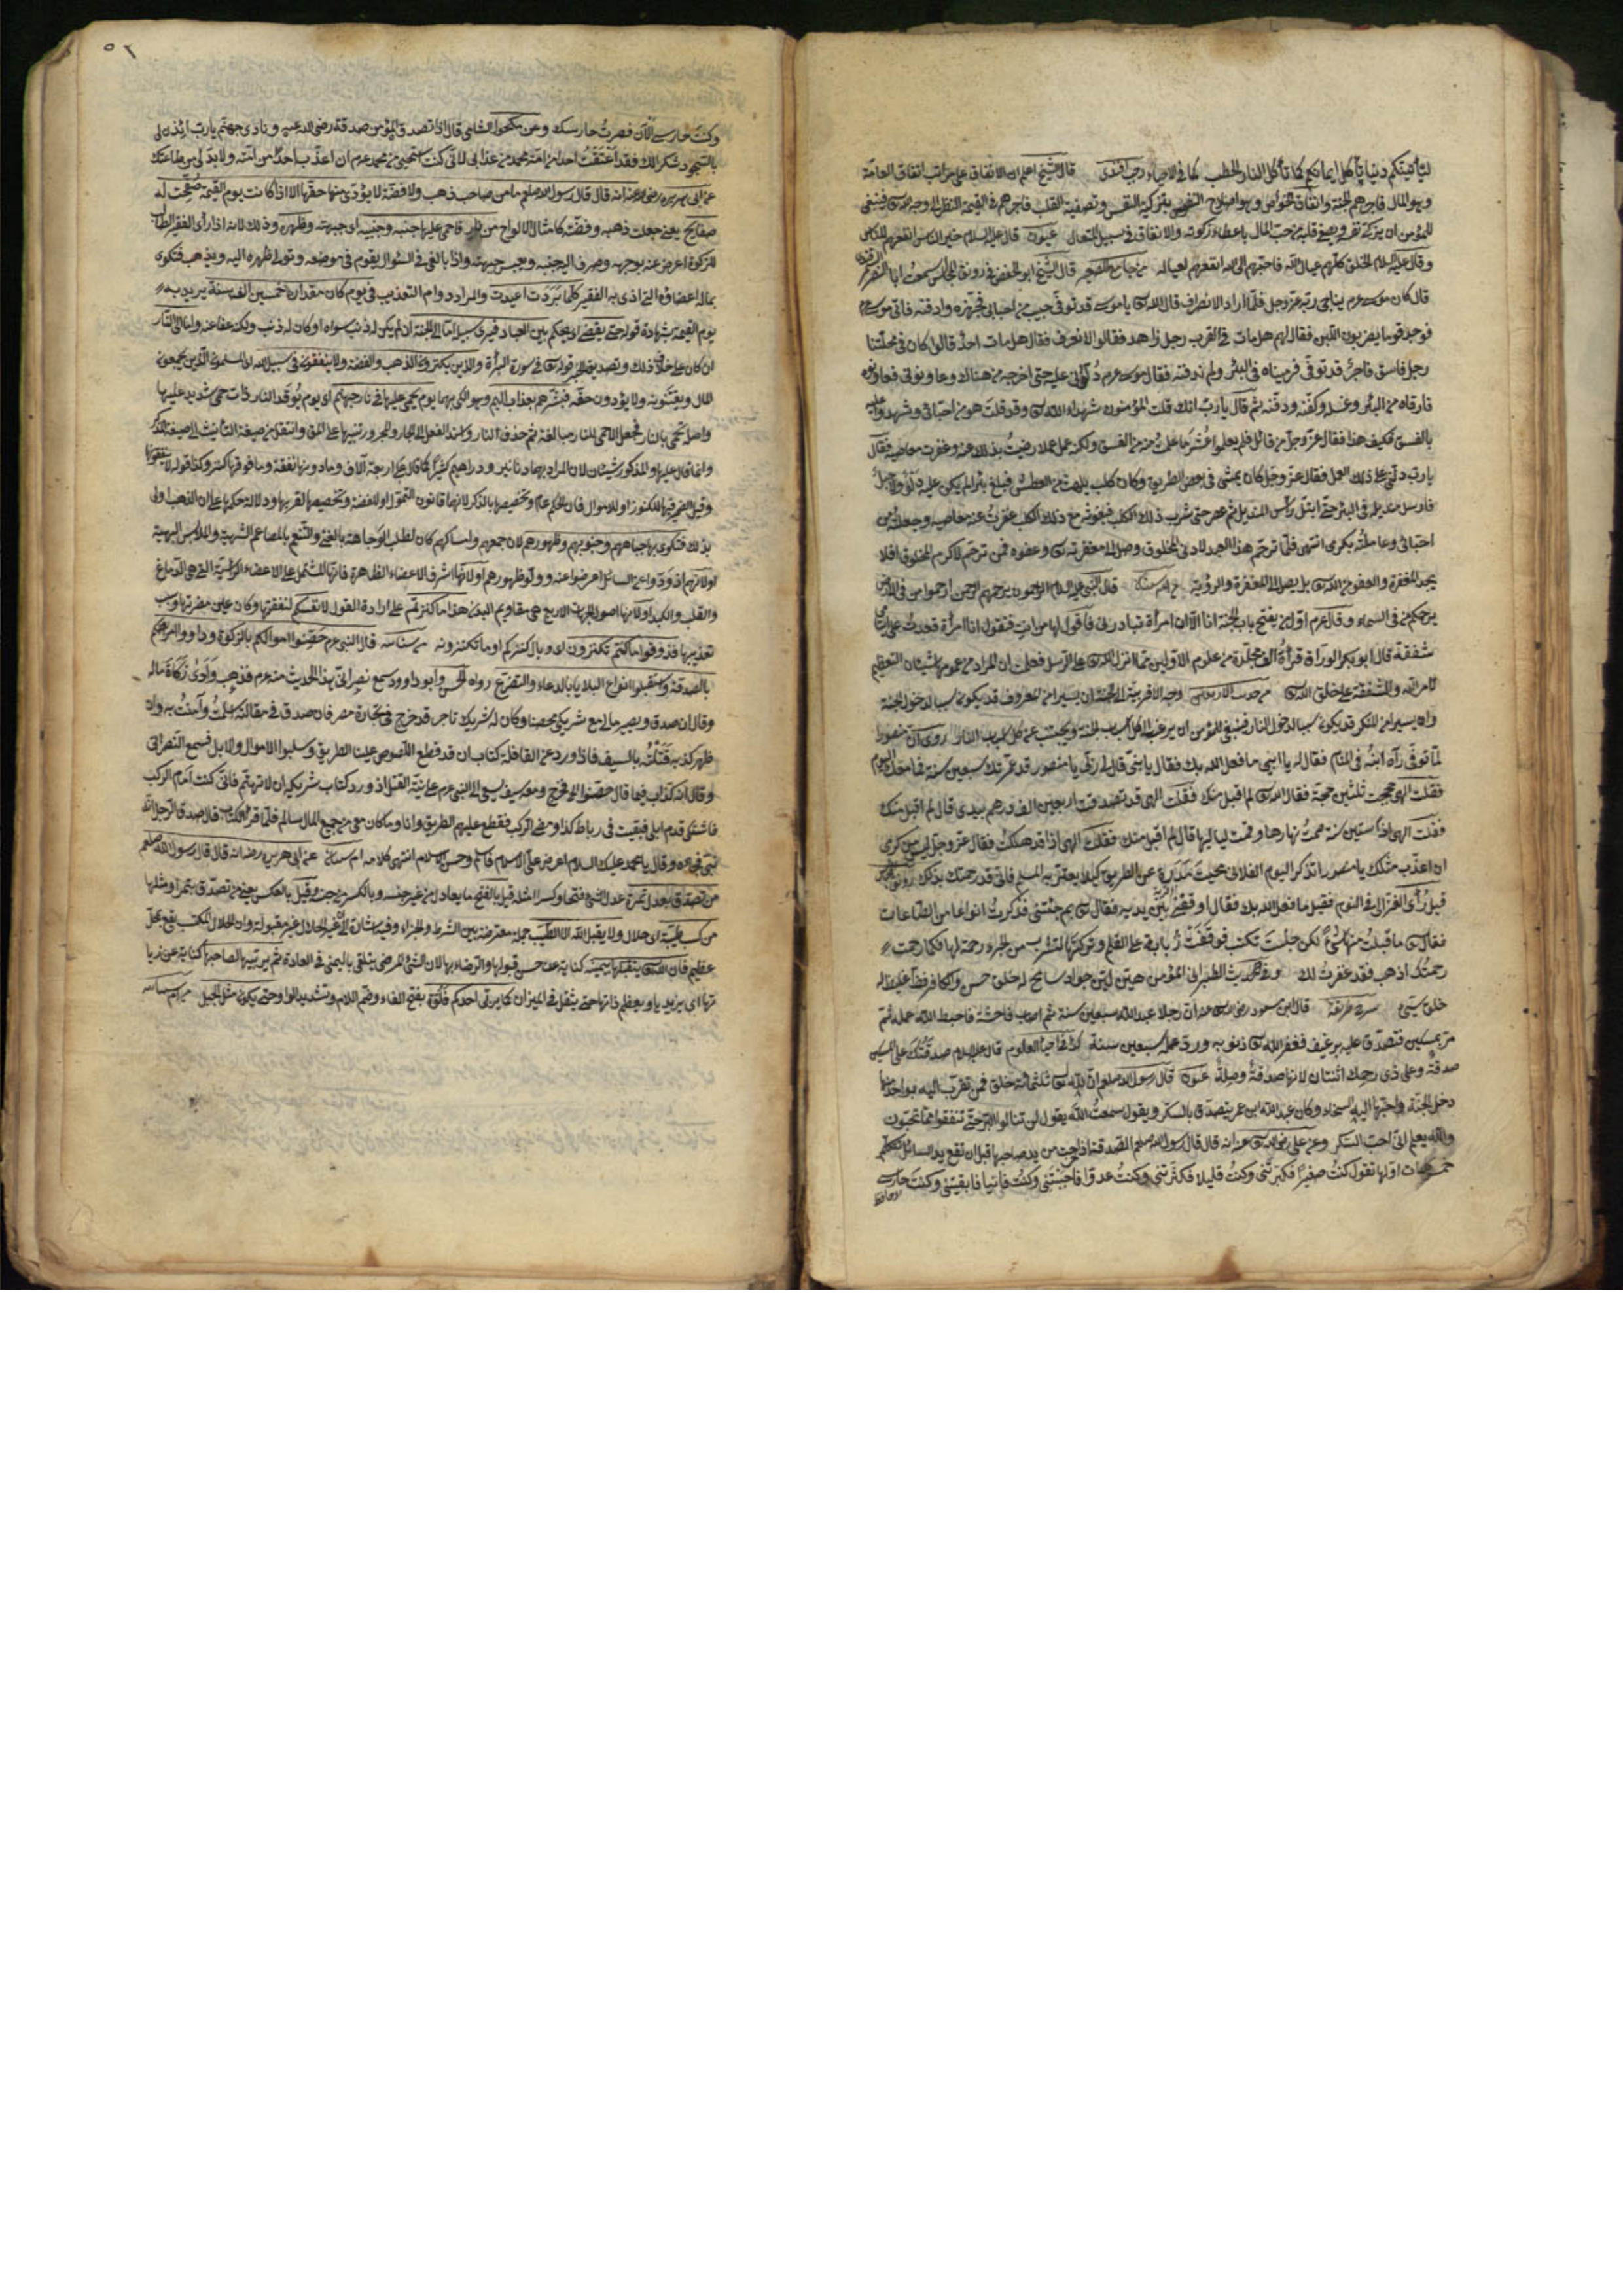 لتأتينكم دنيا تأكل ايمانكم كما تأكل النار الحطب كما فى الاحياء رجب افندى قال الشيخ اعلم ان الانفاق على مراتب انفاق العامة
وهو المال فاجرهم الجنة وانفاق الخواص وهو اصلاح النفس بتزكية النفس وتصفية القلب فاجرهم فى القيمة النظر الى وجه الله فينبغى
للمؤمن ان يزكى نفسه ويصفى قلبه من حب المال باعطاء زكوته والانفاق فى سبيل المتعال عيون قال عليه السلام خير الناس انفعهم للناس
وقال عليه السلام الخلق كلهم عيال الله فاحبهم الى الله انفعهم لعياله من جامع الصغير قال الشيخ ابو الحفص فى رونق المجالس سمعت ابا النصر
قال كان موسى عم يناجى ربه عز وجل فلما اراد الانصراف قال الله تع يا موسى قد توفى حبيب من احبائى فجهزه وادفنه فاتى موسى عم
فوجد قوما يضربون اللبن فقال لهم هل مات فى القرب رجل زاهد فقالوا لا نعرف فقال هل مات احد قالوا كان فى محلتنا
رجل فاسق فاجر قد توفى فرميناه فى البئر ولم ندفنه فقال موسى عم دلونى عليه حتى اخرجه من هناك
فارقاه من البئر وغسله وكفنه ودفنه ثم قال يا رب انك قلت المؤمنون شهداء الله تع وقد قلت هو من احبائى وشهدوا عليه
بالفسق فكيف هذا فقال عز وجل من قائل فلم يعلموا عشر ما علمت منه من الفسق ولكنه عمل عملا رضيت بذلك عنه وغفرت معاصيه فقال
يا رب دلنى على ذلك العمل فقال عز وجل كان يمشى فى بعض الطريق وكان كلب يلهث من العطش فبلغ بئرا لم يكن عليه دلو ولا حبل
فارسل منديله فى البئر حتى ابتل رأس المنديل ثم عصر حتى شرب ذلك الكلب فبعوض مع ذلك الكلب غفرت عنه معاصيه وجعلته من
احبائى وعاملته بكرمى انتهى فلما ترحم هذا العبد لادنى المخلوق وصل الى مغفرته تع وعفوه فمن ترحم لاكرم المخلوق افلا
يجد المغفرة والعفو من الله تع بل يصل الى المغفرة والرؤية قال النبى عليه السلام الراحمون يرحمهم الرحمن ارحموا من فى الارض
يرحمكم من فى السماء وقال عم اول من يفتح باب الجنة انا الا ان امرأة تبادرنى فأقول لها من انت فتقول انا امرأة قعدت على ايتامى
شفقة قال ابو بكر الوراق قرأت الف مجلدة من علوم الاولين مما انزل الله تع على الرسل فعلمت ان المراد من عمومها شيئان التعظيم
لامر الله والشفقة على خلق الله تع من حديث الاربعين وجه الاقربية الى الجنة ان يسيرا من المعروف قد يكون سببا لدخول الجنة
وان يسيرا من المنكر قد يكون سببا لدخول النار فينبغى للمؤمن ان يرغب الى كل اسباب الجنة ويجتنب عن كل اسباب النار روى ان منصورا
لما توفى رآه ابنه فى المنام فقال له يا ابى ما فعل الله بك فقال يا بنى قال لى ربى يا منصور قد عمرتك سبعين سنة فما معك اليوم
فقلت الهى حججت ثلثين حجة فقال الله تع لم اقبل منك فقلت الهى قد تصدقت اربعين الف درهم بيدى قال لم اقبل منك
فقلت الهى اذا ستين سنة صمت نهارها وقمت لياليها قال لم اقبل منك فقلت الهى اذا قد هلكت فقال عز وجل ليس من كرمى
ان اعذب مثلك يا منصور اتذكر اليوم الفلانى نحيت مدرة عن الطريق كيلا يعثر به المسلم فانى قد رحمتك بذلك
قيل رأى الغزالى فى النوم فقيل ما فعل الله بك فقال اوقفنى بين يديه فقال تع بم جئتنى فذكرت انواعا من الطاعات
فقال تع ما قبلت منها شيئا لكن جلست تكتب فوقفت ذبابة على القلم وتركتها لتشرب من الحبر رحمة لها فكما رحمت
رحمتك اذهب فقد غفرت لك وفى حديث الطبرانى المؤمن هين لين جواد سامح له خلق حسن والكافر فظ غليظ له
خلق سيئ سره طريقة قال ابن مسعود رضى الله عنه ان رجلا عبد الله سبعين سنة ثم اصاب فاحشة فاحبط الله عمله ثم
مر بمسكين فتصدق عليه برغيف فغفر الله تع ذنوبه ورد عمله سبعين سنة كذا فى احياء العلوم قال عليه السلام صدقتك على المسكين
صدقة وعلى ذى رحمك اثنتان لانها صدقة وصلة عيون قال رسول الله صلعم ان لله تع ثلثمائة خلق فمن تقرب اليه بواحد منها
دخل الجنة واحبها اليه السخاء وكان عبد الله ابن عمر يتصدق بالسكر ويقول سمعت الله يقول لن تنالوا البر حتى تنفقوا مما تحبون
والله يعلم انى احب السكر وعن على رضى الله تع عنه انه قال قال رسول الله صلعم الصدقة اذا خرجت من يد صاحبها قبل ان تقع يد السائل تتكلم
خمس كلمات اولها تقول كنت صغيرا فكبرتنى وكنت قليلا فكثرتنى وكنت عدوا فاحببتنى وكنت فانيا فابقيتنى وكنت حارسى
٥٢
وكنت حارسى الآن فصرت حارسك وعن مكحول الشامى قال اذا تصدق المؤمن صدقة رضى الله عنه ونادى جهنم يا رب ائذن لى
بالسجود شكرا لك فقد اعتقت احدا من امة محمد من عذابى لانى كنت استحيى من محمد عم ان اعذب احدا من امته ولا بد لى من طاعتك
عن ابى هريرة رضى الله عنه انه قال قال رسول الله صلعم ما من صاحب ذهب ولا فضة لا يؤدى منها حقها الا اذا كانت يوم القيمة صفحت له
صفايح يعنى جعلت ذهبه وفضته كامثال الالواح من نار فاحمى عليها جنبه وجنبيه اى جبهته وظهره وذلك لانه اذا رأى الفقير الطالب
للزكوة اعرض عنه بوجهه وصرف اليه جنبه ويعبس جبهته واذا بالغ فى السؤال يقوم فى موضعه وتولى ظهره اليه ويذهب فتكوى
بماله اعضاؤه التى اذى به الفقير كلما بردت اعيدت والمراد دوام التعذيب فى يوم كان مقداره خمسين الف سنة يريد به
يوم القيمة بشهادة قوله حتى يقضى اى يحكم بين العباد فيرى سبيله اما الى الجنة ان لم يكن له ذنب سواه او كان له ذنب ولكنه عفا عنه واما الى النار
ان كان على خلاف ذلك وتصديق الخبر قوله تع فى سورة البرأة والذين يكنزون الذهب والفضة ولا ينفقونها فى سبيل الله المسلمون الذين يجمعون
المال ويقتنونه ولا يؤدون حقه فبشرهم بعذاب اليم وهو الكى بهما يوم يحمى عليها فى نار جهنم اى يوم توقد النار ذات حمى شديد عليها
واصله تحمى بالنار فجعل الاحمى للنار مبالغة ثم حذف النار واسند الفعل الى الجار والمجرور تنبيها على المق وانتقل من صيغة التأنيث الى صيغة التذكير
وانما قال عليها والمذكور شيئان لان المراد بهما دنانير ودراهم كثيرة كما قال على اربعة آلاف وما دونها نفقة وما فوقها كنز وكذا قوله لا ينفقونها
وقيل الضمير فيها للكنوز او للاموال فان الحكم عام وتخصيصها بالذكر لانهما قانون التمول او للفضة وتخصيصها لقربها ودلالة حكمها على ان الذهب اولى
بذلك فتكوى بها جباههم وجنوبهم وظهورهم لان جمعهم وامساكهم كان لطلب الوجاهة بالغنى والتنعم بالمطاعم الشهية والملابس البهية
او لانهم ازوروا عن السائل اعرضوا عنه وولوا ظهورهم او لانها اشرف الاعضاء الظاهرة فانها المشتمل على الاعضاء الرئيسة التى هى الدماغ
والقلب والكبد او لانها اصول الجهات الاربع هى مقاديم البدن هذا ما كنزتم على ارادة القول لانفسكم لمنفعتها وكان عين مضرتها وسبب
تعذيبها فذوقوا ما كنتم تكنزون اى وبال كنزكم او ما تكنزونه قال النبى عم حصنوا اموالكم بالزكوة وداووا امراضكم
بالصدقة واستقبلوا انواع البلايا بالدعاء والتضرع رواه الحسن وابو داود وسمع نصرانى بهذا الحديث منه عم فذهب وادى زكاة ماله
وقال ان صدق ويصير مالى مع شريكى محصنا وكان له شريك تاجر قد خرج فى تجارة مصر فان صدق فى مقالته اسلمت وآمنت به وان
ظهر كذبه قتلته بالسيف فاذا ورد عن القافلة كتاب ان قد قطع اللصوص علينا الطريق وسلبوا الاموال والابل فسمع النصرانى
وقال انه كذاب فيما قال حصنوا فخرج ومعه سيف يسعى الى النبى عم على نية القتل اذ ورد كتاب شريكه ان لا تهتم فانى كنت امام الركب
فاشتكى قدم ابلى فبقيت فى رباط كذا ومضى الركب فقطع عليهم الطريق وانا وما كان معى من جميع المال سالم فلما قرأ الكتاب قال صدق الرجل انه
نبى فجاءه وقال يا محمد عليك السلام اعرض على الاسلام فاسلم وحسن الاسلام انتهى كلامه عن ابى هريره رض انه قال قال رسول الله صلعم
من تصدق بعدل تمرة عدل الشئ فتحا وكسرا مثله قيل بالفتح ما يعادله من غير جنسه وبالكسر من جنسه وقيل بالعكس يعنى من تصدق بتمرة او مثلها
من كسب طيبة اى حلال ولا يقبل الله الا الطيب جملة معترضة بين الشرط والجزاء وفيه اشارة الى ان غير الحلال غير مقبولة وان الحلال المكتسب يقع بمحل
عظيم فان الله تع يتقبلها بيمينه كناية عن حسن قبولها والرضاء بها لان الشئ المرضى يتلقى باليمنى فى العادة ثم يربيها لصاحبها كناية عن
تربها اى يزيدها ويعظم ذاتها حتى يثقل فى الميزان كما يربى احدكم فلوه بفتح الفاء وضم اللام وتشديد الواو حتى يكون مثل الجبل